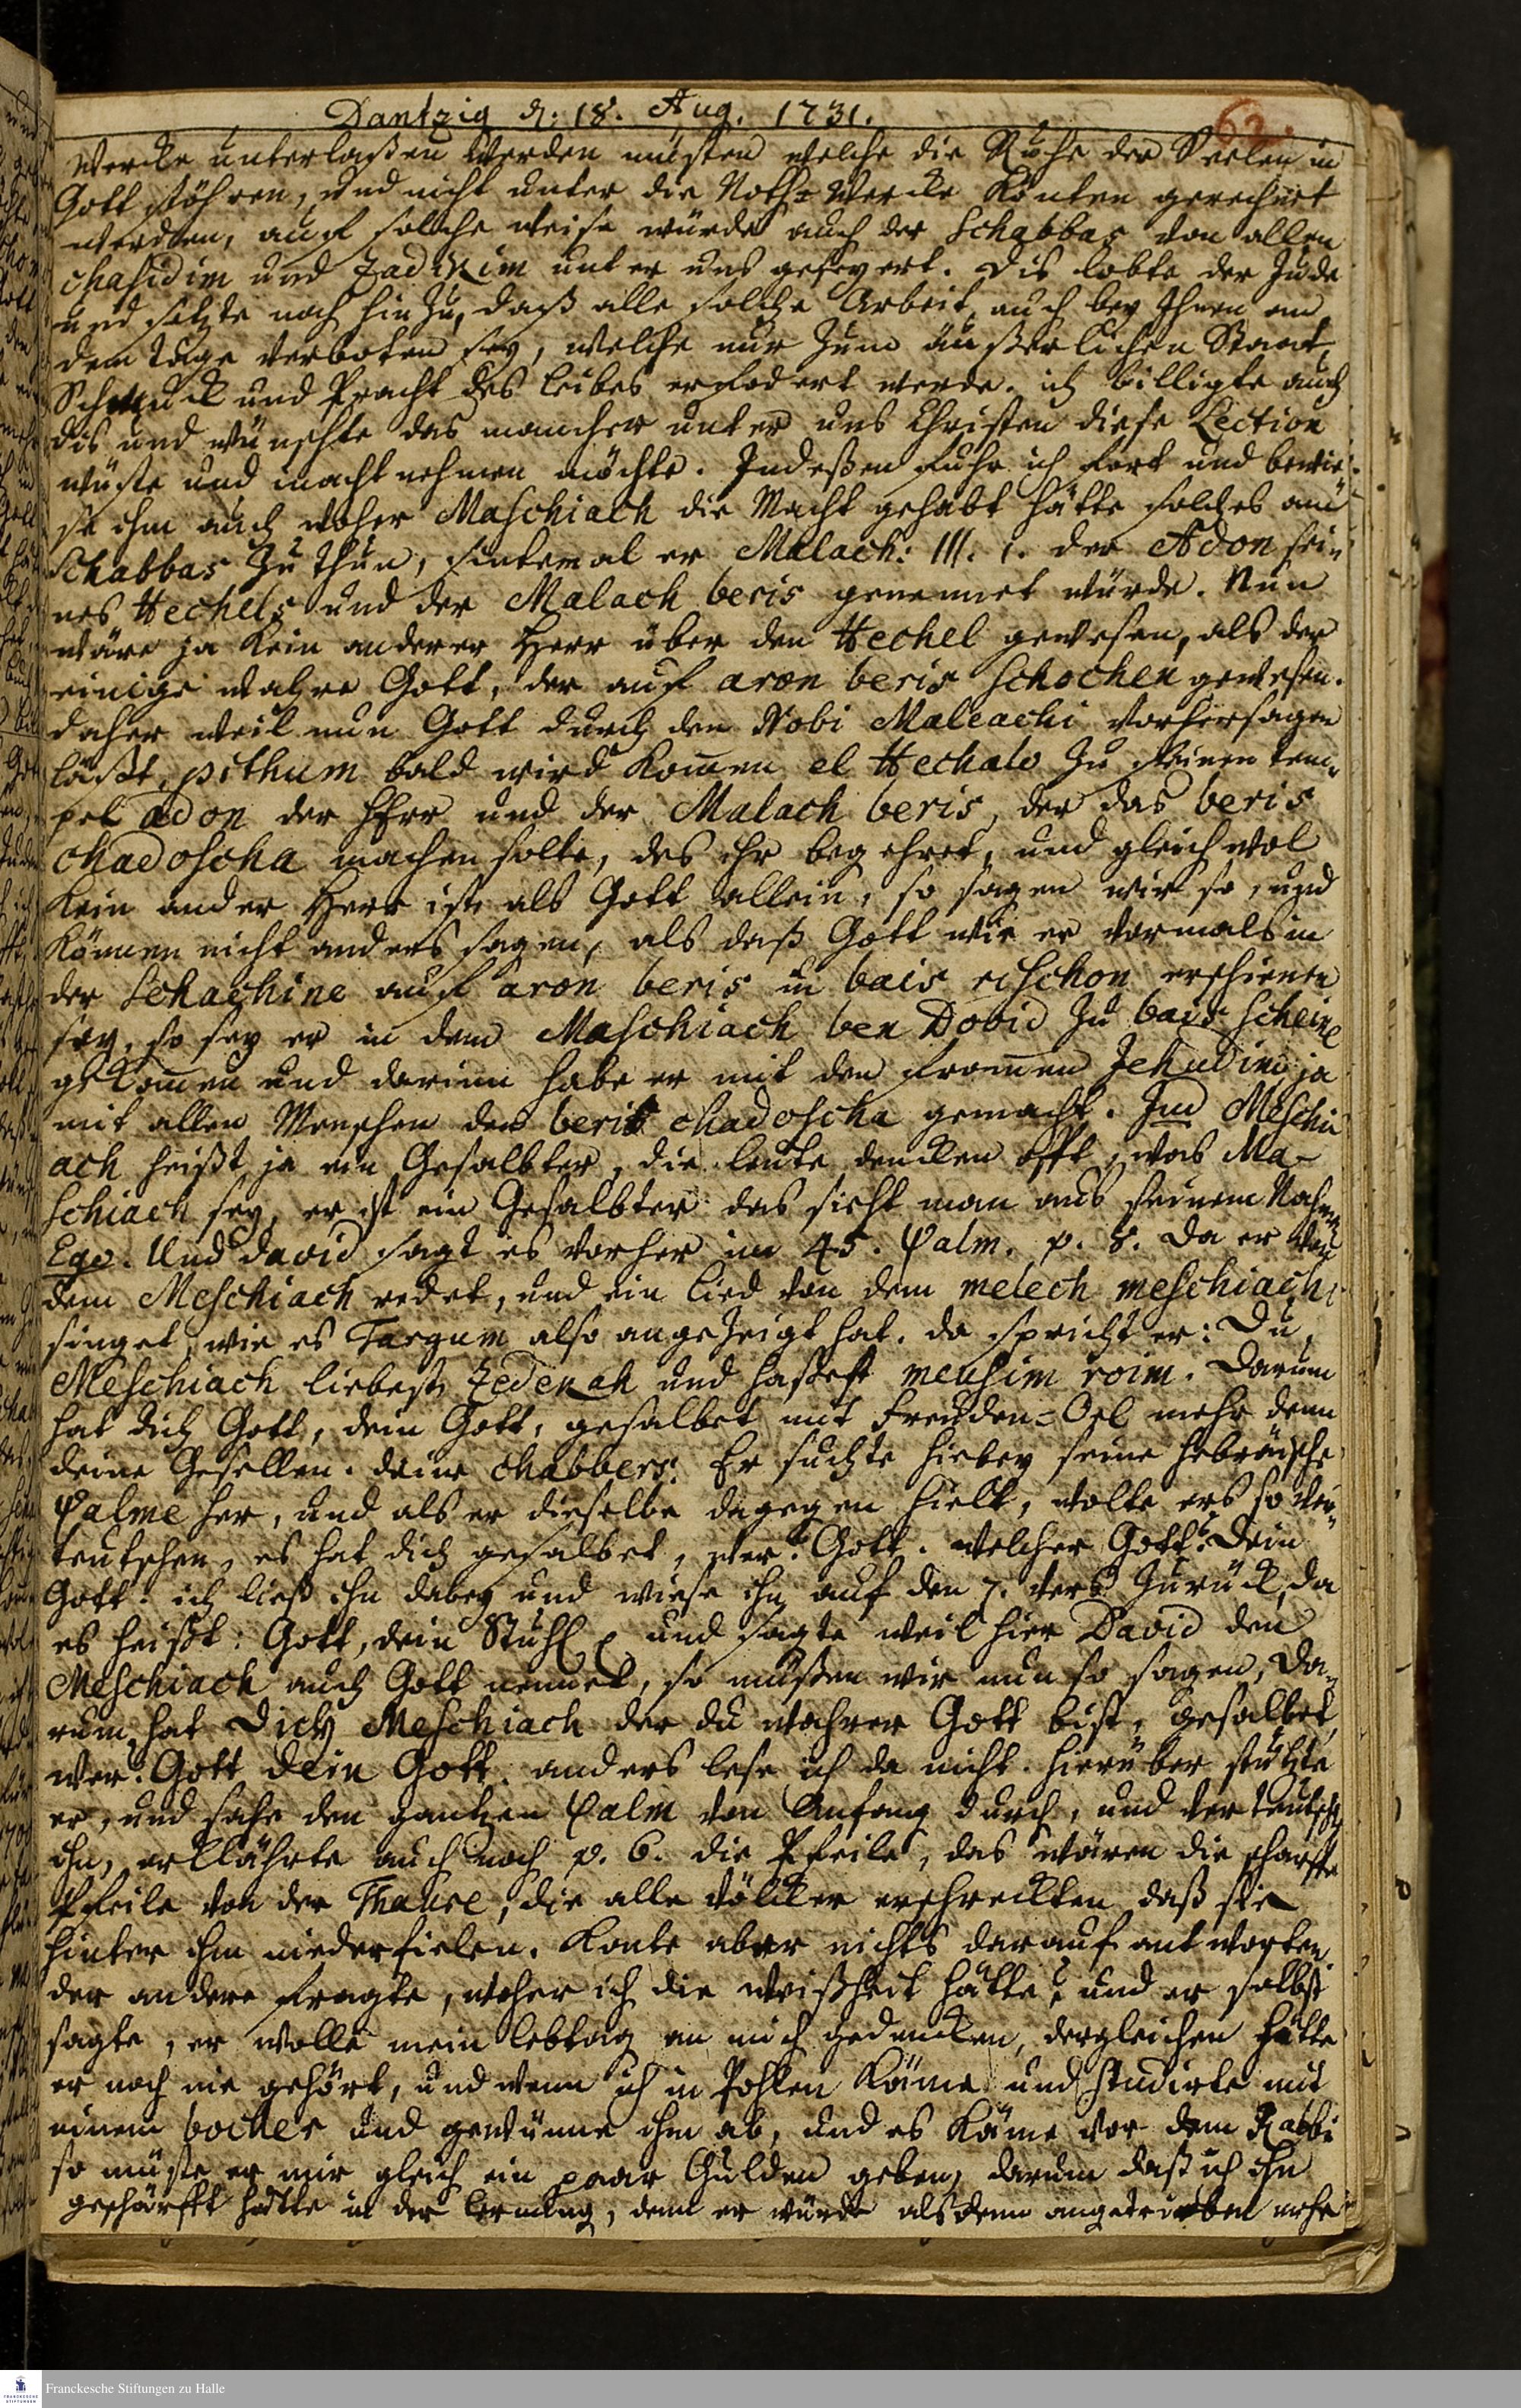 Dantzig d. 18. Aug. 1731.
62.
Wercke unterlaßen werden müsten welche die Ruhe der Seelen in
Gott stöhren, und nicht unter die Noth-Wercke könten gerechnet
werden, auf solche weise würde auch der Schabbas von allen
chasidim und Zadikim unter uns gefeyert. Dis lobte der Jude
und setzte noch hinzu, daß alle solche Arbeit auch bey Ihnen an
dem tage verboten sey, welche nur zum äußerlichen Staat,
Schmuck und Pracht des leibes erfodert werde. ich billigte auch
dis und wünschte das mancher unter uns Christen diese Lection
wüste und in acht nehmen möchte. Indeßen fuhr ich fort und bewie-
se ihm auch woher Maschiach die Macht gehabt hätte solches am
Schabbas zu thun, sintemal er Malach: III. 1. der Adon sei-
nes Hechels und der Malach beris genennet würde. Nun
wäre ja kein anderer Herr über den Hechel gewesen, als der
einige wahre Gott, der auf aron beris schochen gewesen.
daher weil nun Gott durch den Nobi Maleachi vorhersagen
läßt, pithum bald wird kommen el Hechalo zu seinem tem-
pel adon der HErr und der Malach beris, der das beris
chadoscha machen solte, des ihr begehret, und gleichwol
kein ander Herr ist, als Gott allein, so sagen wir so, und
können nicht anders sagen, als daß Gott wie er vormals in
der Schachine auf aron beris in bais rischon erschienen
sey, so sey er in dem Maschiach ben Dovid zu bais scheine
gekommen und darinn habe er mit den frommen Jehudim ja
mit allen Menschen den beris chadoscha gemacht. Jud Meschi-
ach heißt ja ein Gesalbter, die leute dencken offt, was Ma-
schiach sey, er ist ein Gesalbter das sieht man aus seinem Nahmen
Ego. Und david sagt es vorher im 45. Psalm. p. 8. Da er von
dem Meschiach redet, und ein lied von dem melech meschiach
singet, wie es Targum also angezeigt hat. da spricht er: Du,
Meschiach liebest Zedekah und haßest meusim roim. Darum
hat dich Gott, dein Gott, gesalbet mit Freuden-Oel mehr denn
deine Gesellen. deine chabbers. Er suchte hiebey seine hebräische
Psalme her, und als er dieselbe dagegen hielt, wolte ers so ver-
teutschen, es hat dich gesalbet, wer? Gott. welcher Gott? Dein
Gott. ich ließ ihn dabey und wiese ihn auf den 7. vers zurück, da
es heißt: Gott, dein Stuhl und sagte weil hier David den
Meschiach auch Gott nennet, so müßen wir nun so sagen, Da-
rum hat Dich Meschiach der du wahrer Gott bist, gesalbet,
wer? Gott dein Gott. anders lese ich da nicht. hierüber stutzte
er, und sahe den gantzen Psalm von Anfang durch, und verteutscht
ihn, erklährte auch noch p. 6. die Pfeile, das wären die scharffe
Pfeile von der Thaure, die alle völcker erschreckten daß sie
hinter ihm niederfielen. Konte aber nichts darauf antworten,
der andere fragte, woher ich die weißheit hätte? und er selbst
sagte, er wolle mein lebtag an mich gedencken, dergleichen hätte
er noch nie gehört, und wenn ich in Pohlen käme und studirte mit
einem bocher und gewünne ihm ab, und es käme vor dem Rabbi
so müste er mir gleich ein paar Gulden geben, darum daß ich ihn
geschärfft hätte in der lernung, denn er würde alsdenn angetrieben mehr
Franckesche Stiftungen zu Halle